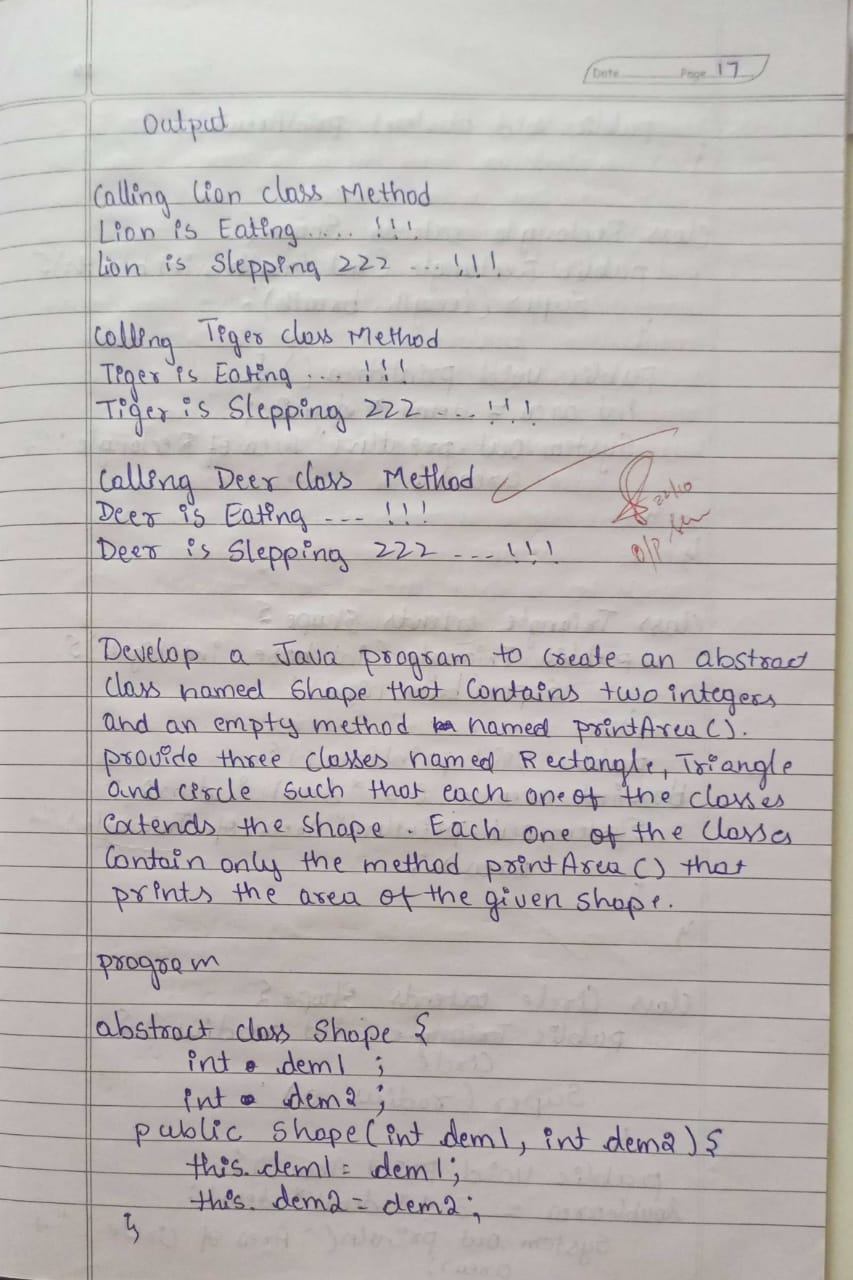 Date Page 17
Output
Calling Lion class Method
Lion is Eating..... !!!
Lion is Slepping 222 ... !!!
Calling Tiger class Method
Tiger is Eating .... !!!
Tiger is Slepping 222 .... !!!
Calling Deer class Method
Deer is Eating --- !!!
Deer is Slepping 222 ---- !!!
22/10
O/P
Develop a Java program to create an abstract
class named Shape that Contains two integers
and an empty method named printArea().
provide three classes named Rectangle, Triangle
and circle such that each one of the classes
extends the shape. Each one of the classes
Contain only the method printArea() that
prints the area of the given shape.
program
abstract class Shape {
int dem1 ;
int dem2 ;
public Shape(int dem1, int dem2) {
this.dem1 = dem1;
this.dem2 = dem2;
}